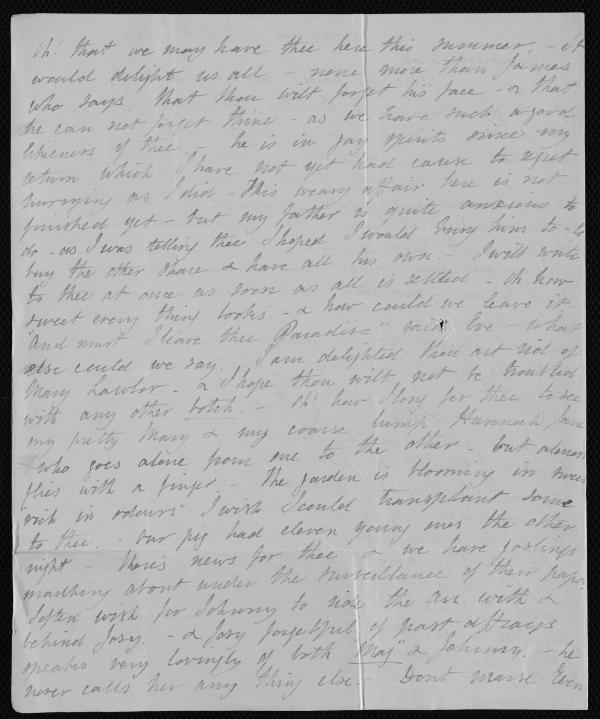 Oh! that we may have thee here this summer, - it
would delight us all - none more than James
who says that thou wilt forget his face - & that
he can not forget thine - as we have such a good
likeness of thee. - he is in gay spirits since my
return which I have not yet had cause to regret
hurrying as I did. - This weary affair here is not
finished yet - but my father is quite anxious to
do - as I was telling thee I hoped I would bring him to - to
buy the other share & have all his own. - I will write
to thee at once as soon as all is settled - Oh how
sweet every thing looks - & how could we leave it
"And must I leave thee Paradise" said Eve - what
else could we say. I am delighted thou art rid of
Mary Lawlor - & I hope thou wilt not be troubled
with any other botch. - Oh! how I long for thee to see
my pretty Mary & my coarse lump Hannah Jane
who goes alone from one to the other - but almost
flies with a finger - the garden is blooming in sweets
"rich in odours" I wish I could transplant some
to thee. - Our pig had eleven young ones the other
night - there's news for thee & we have goslings
marching about under the surveillance of their papa.
I often wish for Johnny to ride the Ass with &
behind Josy. - & Josy forgetful of past affrays
speaks very lovingly of both "Maj" & Johnny. - he
never calls her any thing else. - Dont nurse Even